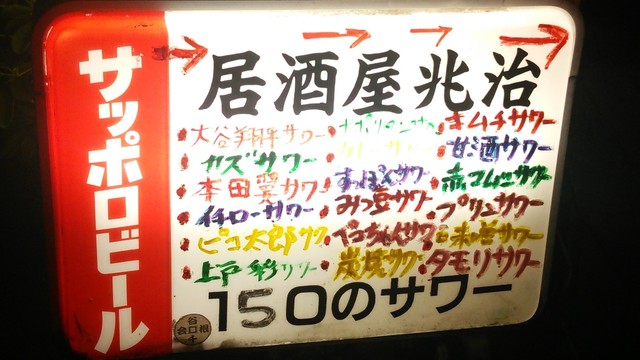 サッポロビール
居酒屋 兆治
大谷翔平サワー
カズサワー
本田翼サワー
イチローサワー
ピコ太郎サワー
上戸彩サワー
ナポリタンサワー
カレーサワー
すっぽんサワー
みつ豆サワー
炭焼サワー
キムチサワー
甘酒サワー
赤マムシサワー
プリンサワー
味噌サワー
タモリサワー
150のサワー
谷根
会口